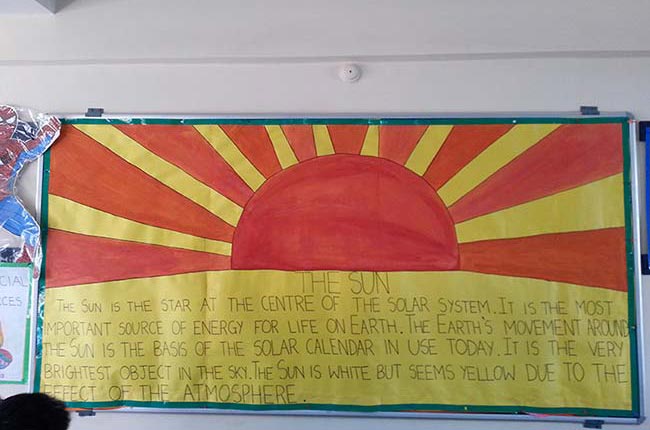 THE SUN
THE SUN IS THE STAR AT THE CENTRE OF THE SOLAR SYSTEM. IT IS THE MOST
IMPORTANT SOURCE OF ENERGY FOR LIFE ON EARTH. THE EARTH'S MOVEMENT AROUND
THE SUN IS THE BASIS OF THE SOLAR CALENDAR IN USE TODAY. IT IS THE VERY
BRIGHTEST OBJECT IN THE SKY. THE SUN IS WHITE BUT SEEMS YELLOW DUE TO THE
EFFECT OF THE ATMOSPHERE.